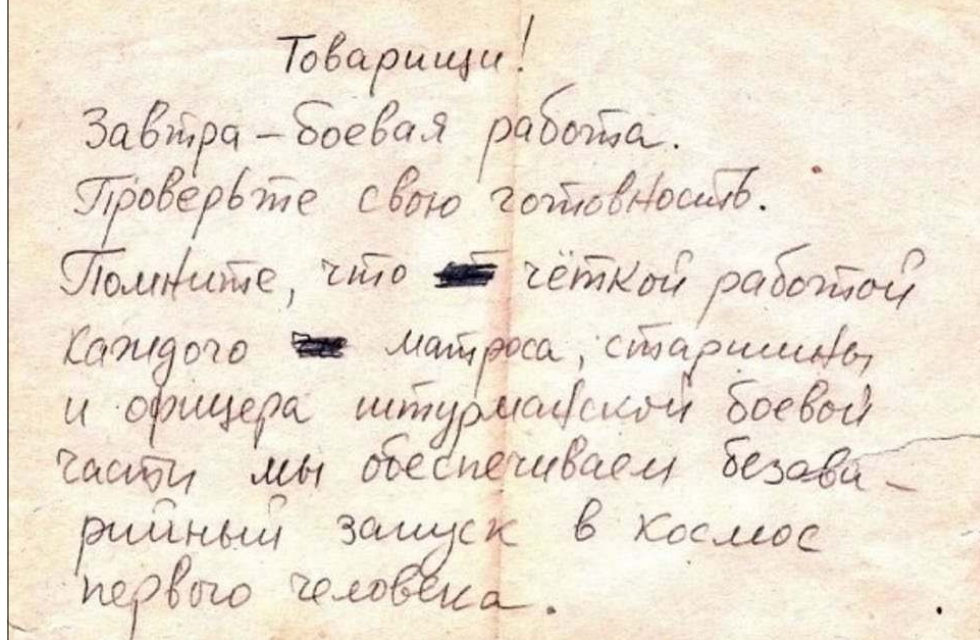 Товарищи!
Завтра – боевая работа.
Проверьте свою готовность.
Помните, что чёткой работой
каждого матроса, старшины
и офицера штурманской боевой
части мы обеспечиваем безава-
рийный запуск в космос
первого человека.